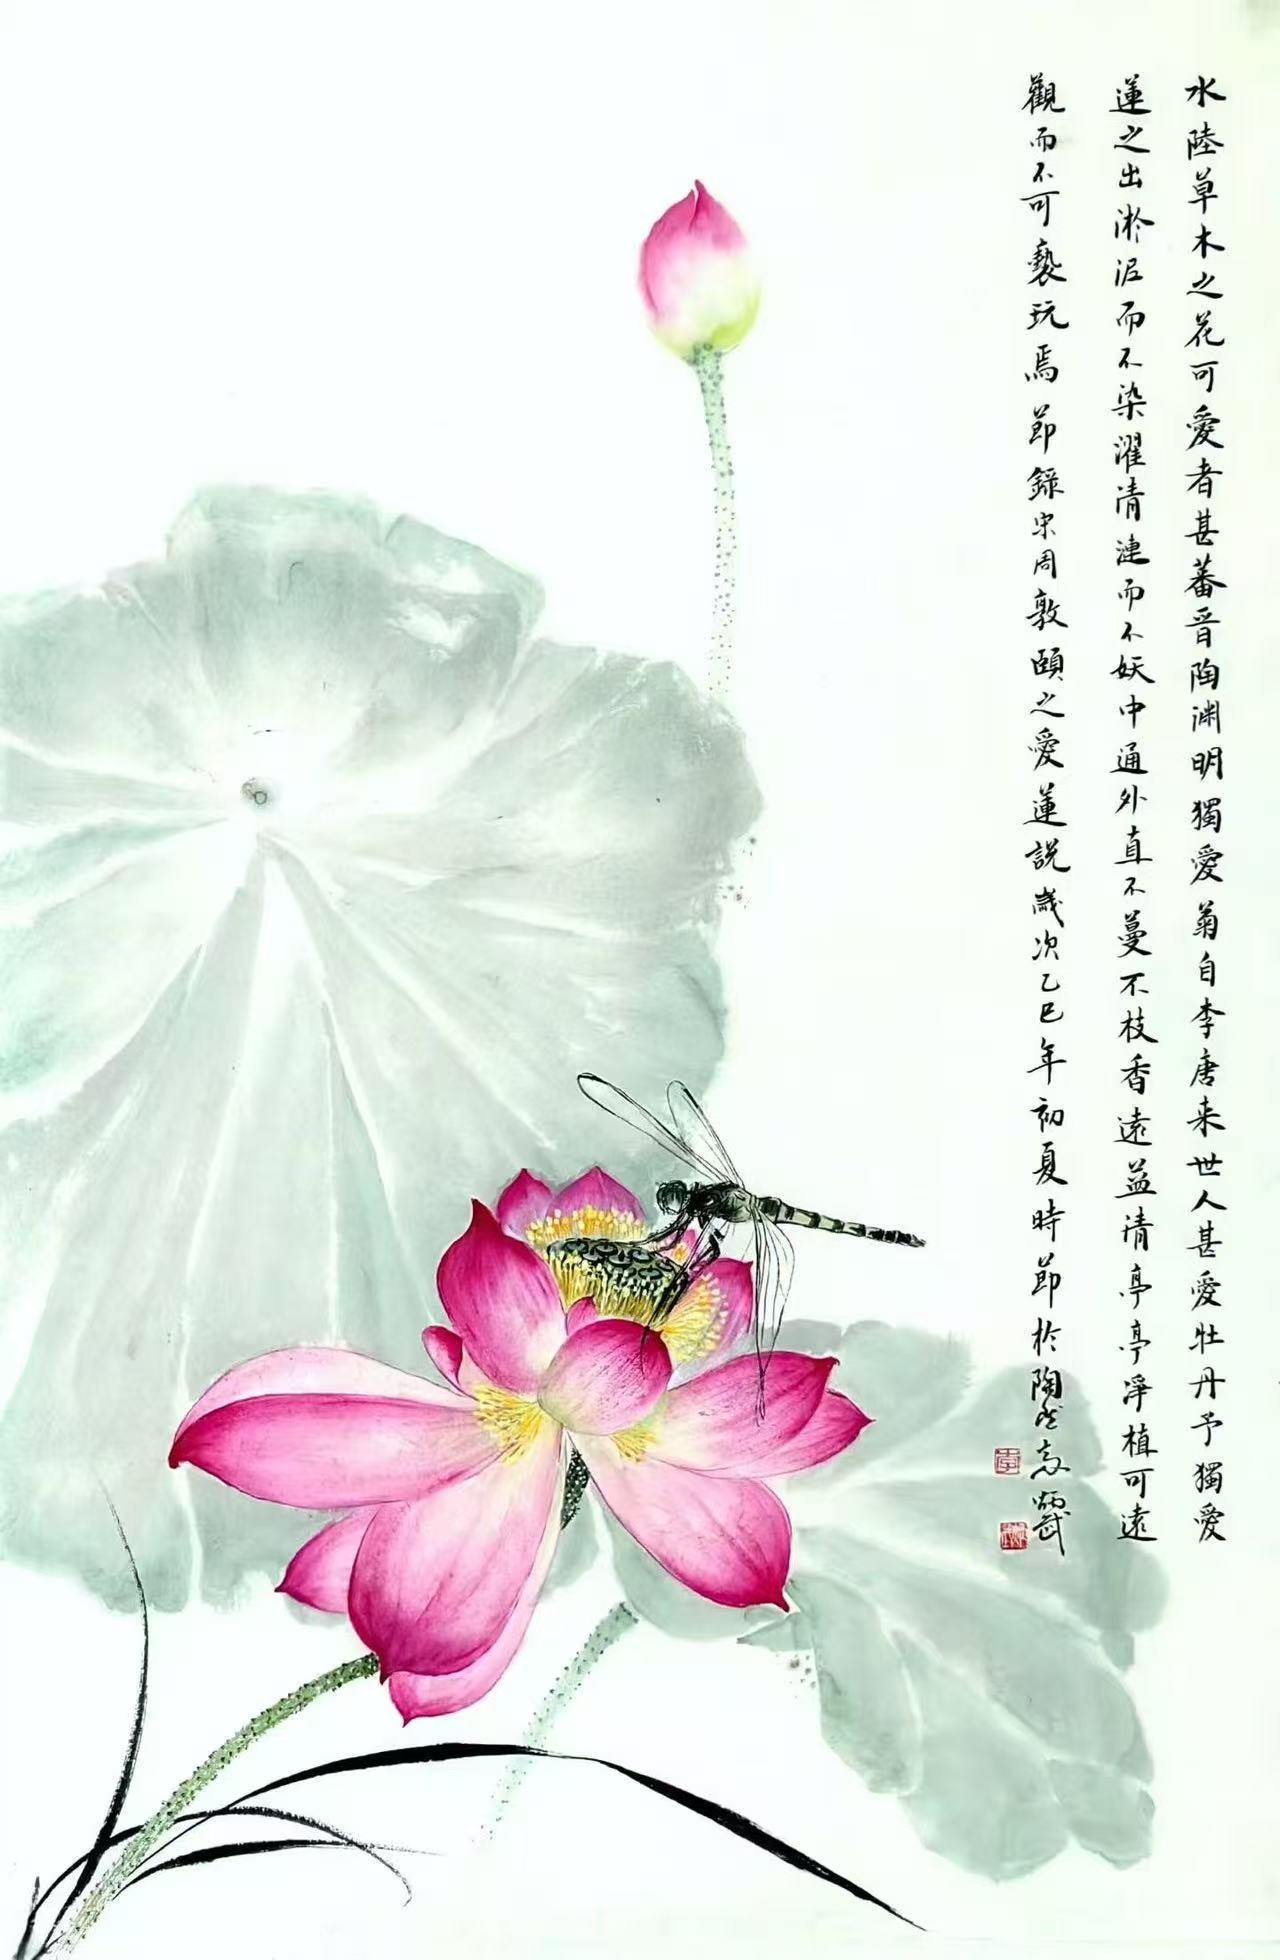 水陸草木之花可愛者甚蕃晉陶渊明獨愛菊自李唐来世人甚愛牡丹予獨愛
蓮之出淤泥而不染濯清漣而不妖中通外直不蔓不枝香遠益清亭亭凈植可遠
觀而不可褻玩焉節錄宋周敦頤之愛蓮説歲次乙巳年初夏時節於陶然